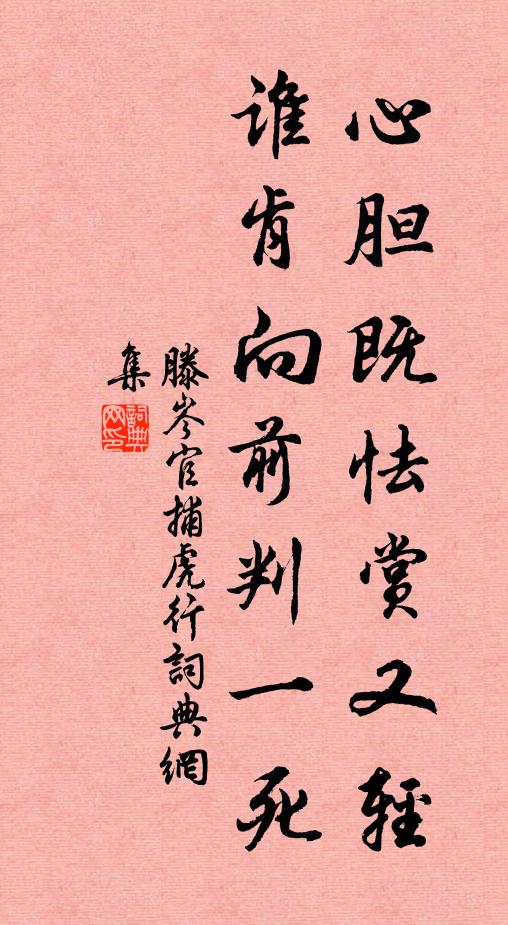 心胆既怯赏又輕
谁肯向前判一死
滕岑官捕虎行詞典網
集
詞典網印